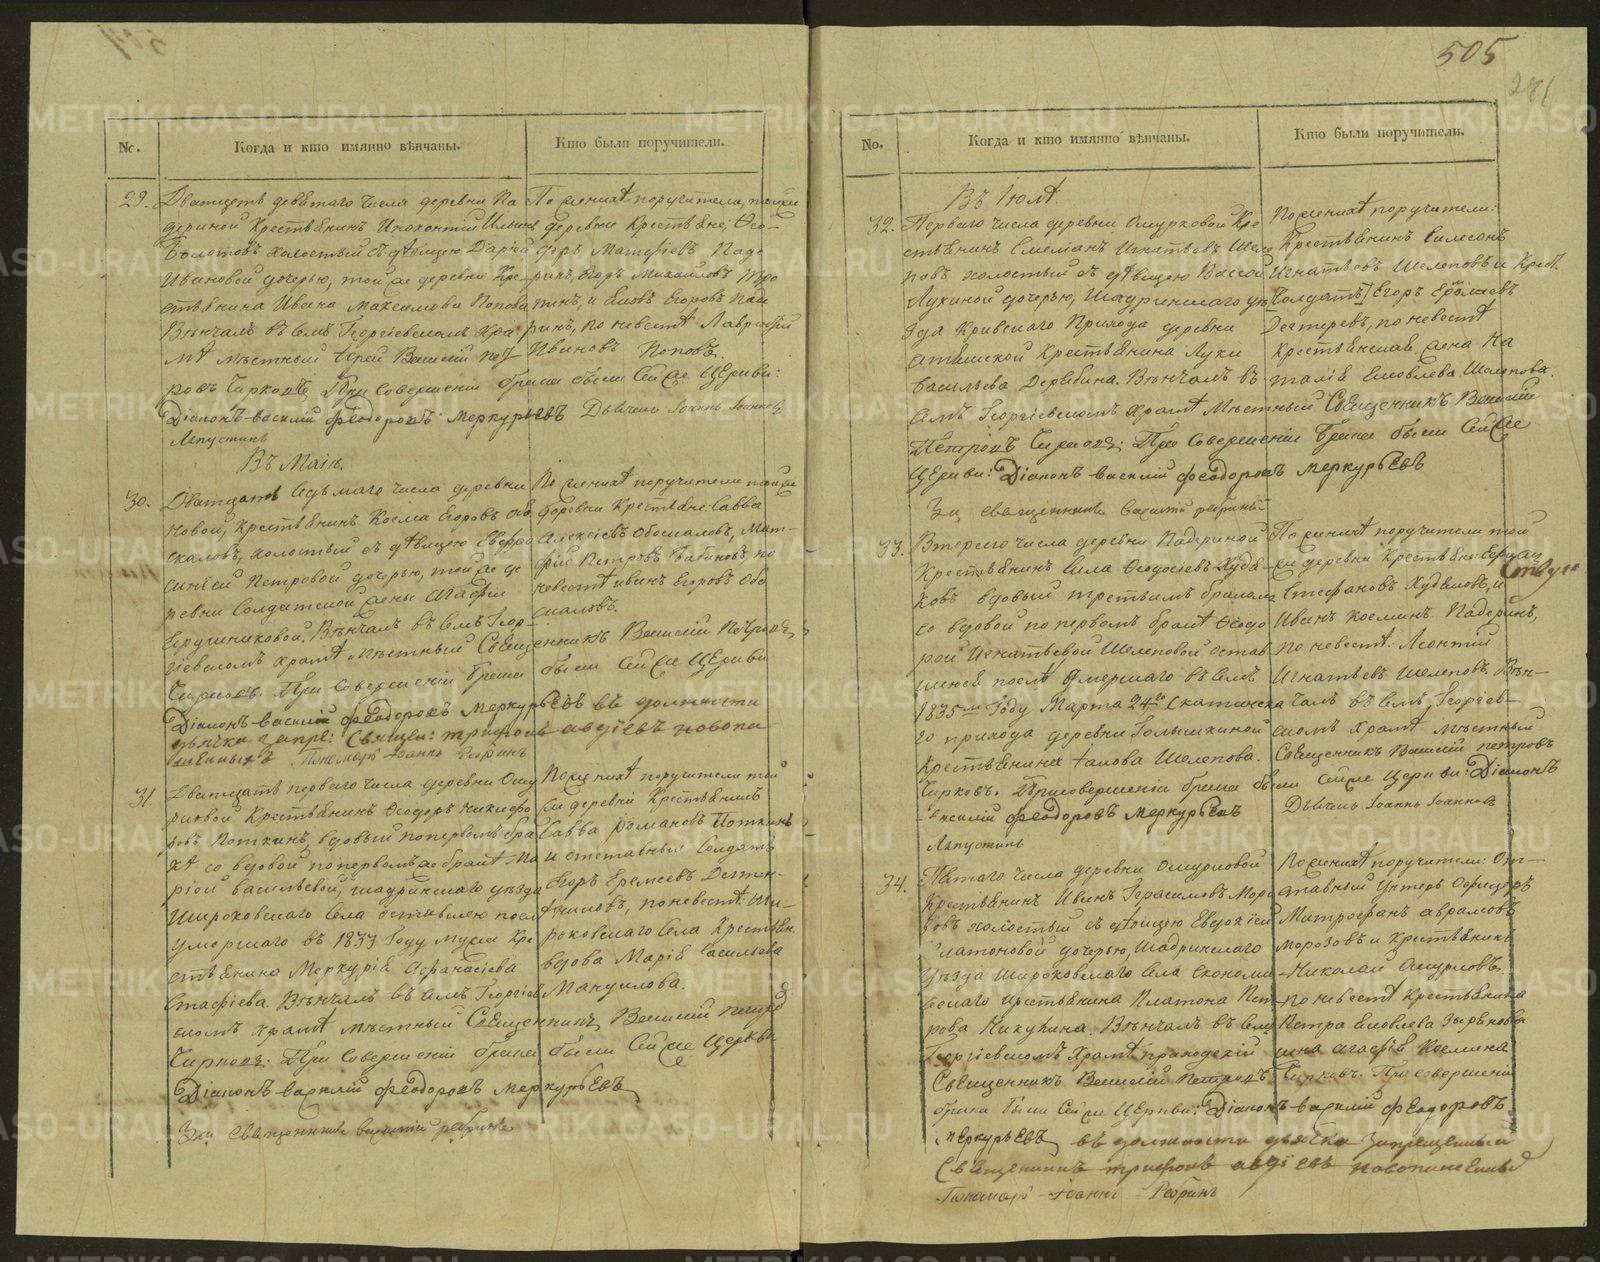 505
281
№.
Когда и кто имянно вѣнчаны.
Кто были поручители.
29.
Дватцеть девѣтаго числа деревни Па
дериной Крестьянинъ Инокентий Ильинъ
Болотовъ холостый съ дѣвицею Дарьей
Ивановой дочерью, той же деревни Кре-
стьянина Ивана Максимова Попова
Вѣнчалъ въ селѣ Георгіевскомъ Хра-
мѣ мѣстный Іерей Василій Пет-
ровъ Чирковъ При совершеніи брака были сей же Церкви:
Діаконъ Василій Феодоровъ Меркурьевъ Дьячекъ Іоаннъ Іоанновъ
Лапустинъ
По женихѣ поручители, той же
деревни Крестьяне, Фео-
доръ Матфіевъ Паде
ринъ, Егоръ Михайловъ
и Яковъ Егоровъ Паде
ринъ, по невестѣ Лаврентій
Ивановъ Поповъ.
Въ Маіи.
30.
Дватцать седьмаго числа деревни
Новой, Крестьянинъ Косма Егоровъ Обо
скаловъ, холостый съ дѣвицею Евфро
синіей Петровой дочерью, той же де
ревни Солдатской жены Агафіи
Вѣнчалъ въ селѣ Геор-
гіевскомъ храмѣ мѣстный Священникъ Василій Петровъ
Чирковъ. При совершеніи брака были сей же Церкви
Діаконъ Василій Феодоровъ Меркурьевъ въ должности
дьячка запре: Священ: Трифонъ Авдіевъ Новопа
шенныхъ Пономарь Іоаннъ Ребринъ
По женихѣ поручители той же
деревни Крестьяне: Савва
Алексіевъ Обоскаловъ, Мат-
фій Петровъ Бабиновъ, по
невестѣ Иванъ Егоровъ Обо
скаловъ.
31.
Дватцать перваго числа деревни Ошу
рковой Крестьянинъ Феодоръ Никифо
ровъ Поткинъ, вдовый по первомъ бра
кѣ со вдовой по первомъ же бракѣ Ма
ріей Васильевой, шадринскаго уѣзда
Широковскаго села оставшею после
умершаго въ 1833 Году мужа Кре
стьянина Меркурія Афанасіева
Стафіева. Вѣнчалъ въ селѣ Георгіев
скомъ храмѣ мѣстный Священникъ Василій Петров
Чирковъ: При Совершеніи брака были Сей же Церкви
Діаконъ Василій Феодоровъ Меркурьевъ
За священника Василій Ребринъ
По женихѣ поручители той
же деревни Крестьянинъ
Савва Романовъ Поткинъ
и отставный Солдатъ
Егоръ Еремеевъ
по невестѣ: Ши-
роковскаго села Крестьян.
вдова Марія Васильева
Мануилова.
№.
Когда и кто имянно вѣнчаны.
Кто были поручители.
Въ Іюлѣ.
32.
Перваго числа деревни Ошурковой Кре
стьянинъ Игнатьевъ Шеле
повъ холостый съ дѣвицею Вассой
Лукиной дочерью, Шадринскаго уѣ
зда Кривскаго Прихода деревни
Крестьянина Луки
Васильева Дерябина. Вѣнчалъ въ
Селѣ Георгіевскомъ Храмѣ Мѣстный Священникъ Василій
Петровъ Чирковъ: При Совершеніи брака были Сей же
Церкви: Діаконъ Василій Феодоровъ Меркурьевъ
За священника Василій Ребринъ
По женихѣ поручители:
Крестьянинъ
Игнатьевъ Шелеповъ и
Солдатъ Егоръ
Дегтеревъ, по невестѣ
Крестьянская жена На
талія Яковлева Шелепова.
33.
Втораго числа деревни Падериной
Крестьянинъ Сила Феодосіевъ Худя-
ковъ вдовый третьимъ бракомъ
со вдовой по первомъ бракѣ Феодо
рой Игнатьевой Шелеповой остав
шисей послѣ умершаго въ селѣ
1835м Году Марта 24го
го прихода деревни Голышкиной
Крестьянина Іакова Шелепова.
Чирковъ. При совершеніи брака бы ли сей же Церкви: Діаконъ
Василій Феодоровъ Меркурьевъ Дьячекъ Іоаннъ Іоанновъ
Лапустинъ
По женихѣ поручители той
же деревни Крестьяне:
Стефановъ Худяковъ, и
Иванъ Косминъ Падеринъ,
по невестѣ: Леонтій
Игнатьевъ Шелеповъ. Вѣн-
чалъ въ селѣ Георгіев-
скомъ Храмѣ мѣстный
Священникъ Василій Петровъ
34.
Пятаго числа деревни Ошурковой
Крестьянинъ Иванъ Герасимовъ Моро
зовъ холостый съ дѣвицею Евдокіей
Платоновой дочерью, Шадринскаго
Уѣзда Широковскаго села Економи
ческаго крестьянина Платона Пет
рова Никулина. Вѣнчалъ въ селѣ
Георгіевскомъ Храмѣ приходскій
Священникъ Василій Петровъ Чирковъ. При совершеніи
брака были Сей же Церкви: Діаконъ Василій Феодоровъ
Меркурьевъ въ должности дьячка запрещенный
Священникъ Трифонъ Авдіевъ Новопашенный
Пономарь Іоаннъ Ребринъ
По женихѣ поручители: От-
ставный Унтеръ Офицеръ
Митрофанъ Аврамовъ
Морозовъ и Крестьянинъ
Николай Ошурковъ.
по невестѣ Крестьянина
Петра Яковлева Зырянова
жена Агафія Космина